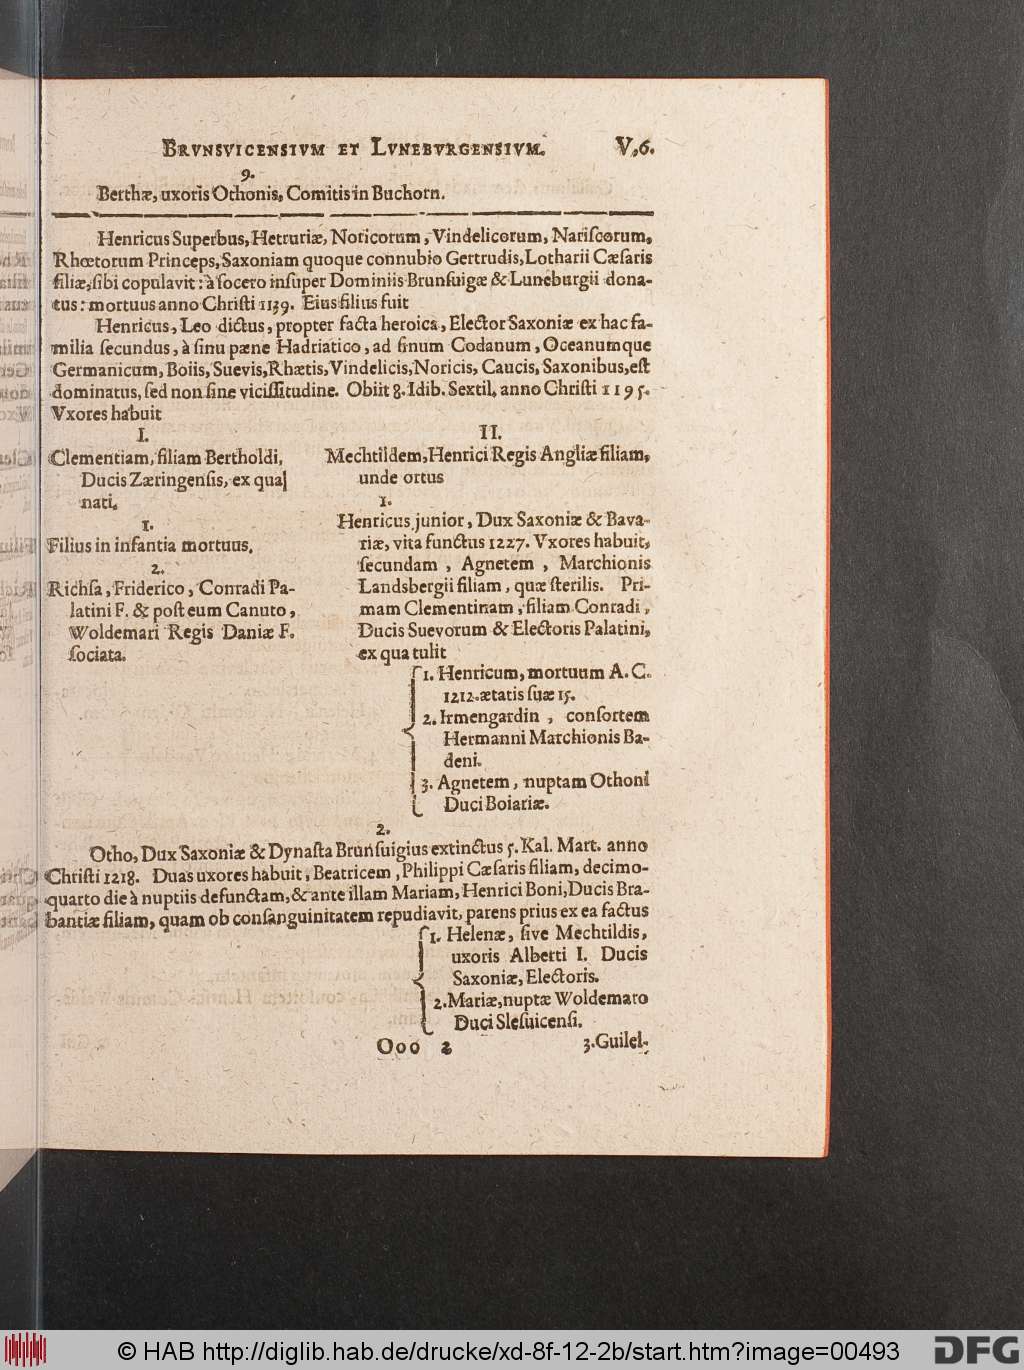 BRVNSVICENSIVM ET LVNEBVRGENSIVM. V,6.
9.
Berthæ, uxoris Othonis, Comitis in Buchorn.
Henricus Superbus, Hetruriæ, Noricorum, Vindelicorum, Nariſcorum,
Rhœtorum Princeps, Saxoniam quoque connubio Gertrudis, Lotharii Cæſaris
filiæ, ſibi copulavit: à ſocero inſuper Dominiis Brunſuigæ & Luneburgii dona-
tus: mortuus anno Chriſti 1139. Ejus filius fuit
Henricus, Leo dictus, propter facta heroica, Elector Saxoniæ ex hac fa-
milia ſecundus, à ſinu pæne Hadriatico, ad ſinum Codanum, Oceanumque
Germanicum, Boiis, Suevis, Rhætis, Vindelicis, Noricis, Caucis, Saxonibus, eſt
dominatus, ſed non ſine viciſſitudine. Obiit 8. Idib. Sextil. anno Chriſti 1195.
Vxores habuit
I.
Clementiam, filiam Bertholdi,
Ducis Zæringenſis, ex qua
nati.
1.
Filius in infantia mortuus.
2.
Richſa, Friderico, Conradi Pa-
latini F. & poſt eum Canuto,
Woldemari Regis Daniæ F.
ſociata.
II.
Mechtildem, Henrici Regis Angliæ filiam,
unde ortus
1.
Henricus junior, Dux Saxoniæ & Bava-
riæ, vita functus 1227. Vxores habuit,
ſecundam, Agnetem, Marchionis
Landsbergii filiam, quæ ſterilis. Pri-
mam Clementinam, filiam Conradi,
Ducis Suevorum & Electoris Palatini,
ex qua tulit
1. Henricum, mortuum A. C.
1212. ætatis ſuæ 15.
2. Irmengardin, conſortem
Hermanni Marchionis Ba-
deni.
3. Agnetem, nuptam Othoni
Duci Boiariæ.
2.
Otho, Dux Saxoniæ & Dynaſta Brunſuigius extinctus 5. Kal. Mart. anno
Chriſti 1218. Duas uxores habuit, Beatricem, Philippi Cæſaris filiam, decimo-
quarto die à nuptiis defunctam, & ante illam Mariam, Henrici Boni, Ducis Bra-
bantiæ filiam, quam ob conſanguinitatem repudiavit, parens prius ex ea factus
1. Helenæ, ſive Mechtildis,
uxoris Alberti I. Ducis
Saxoniæ, Electoris.
2. Mariæ, nuptæ Woldemaro
Duci Sleſuicenſi.
Ooo 2 3. Guilel-
© HAB http://diglib.hab.de/drucke/xd-8f-12-2b/start.htm?image=00493
DFG